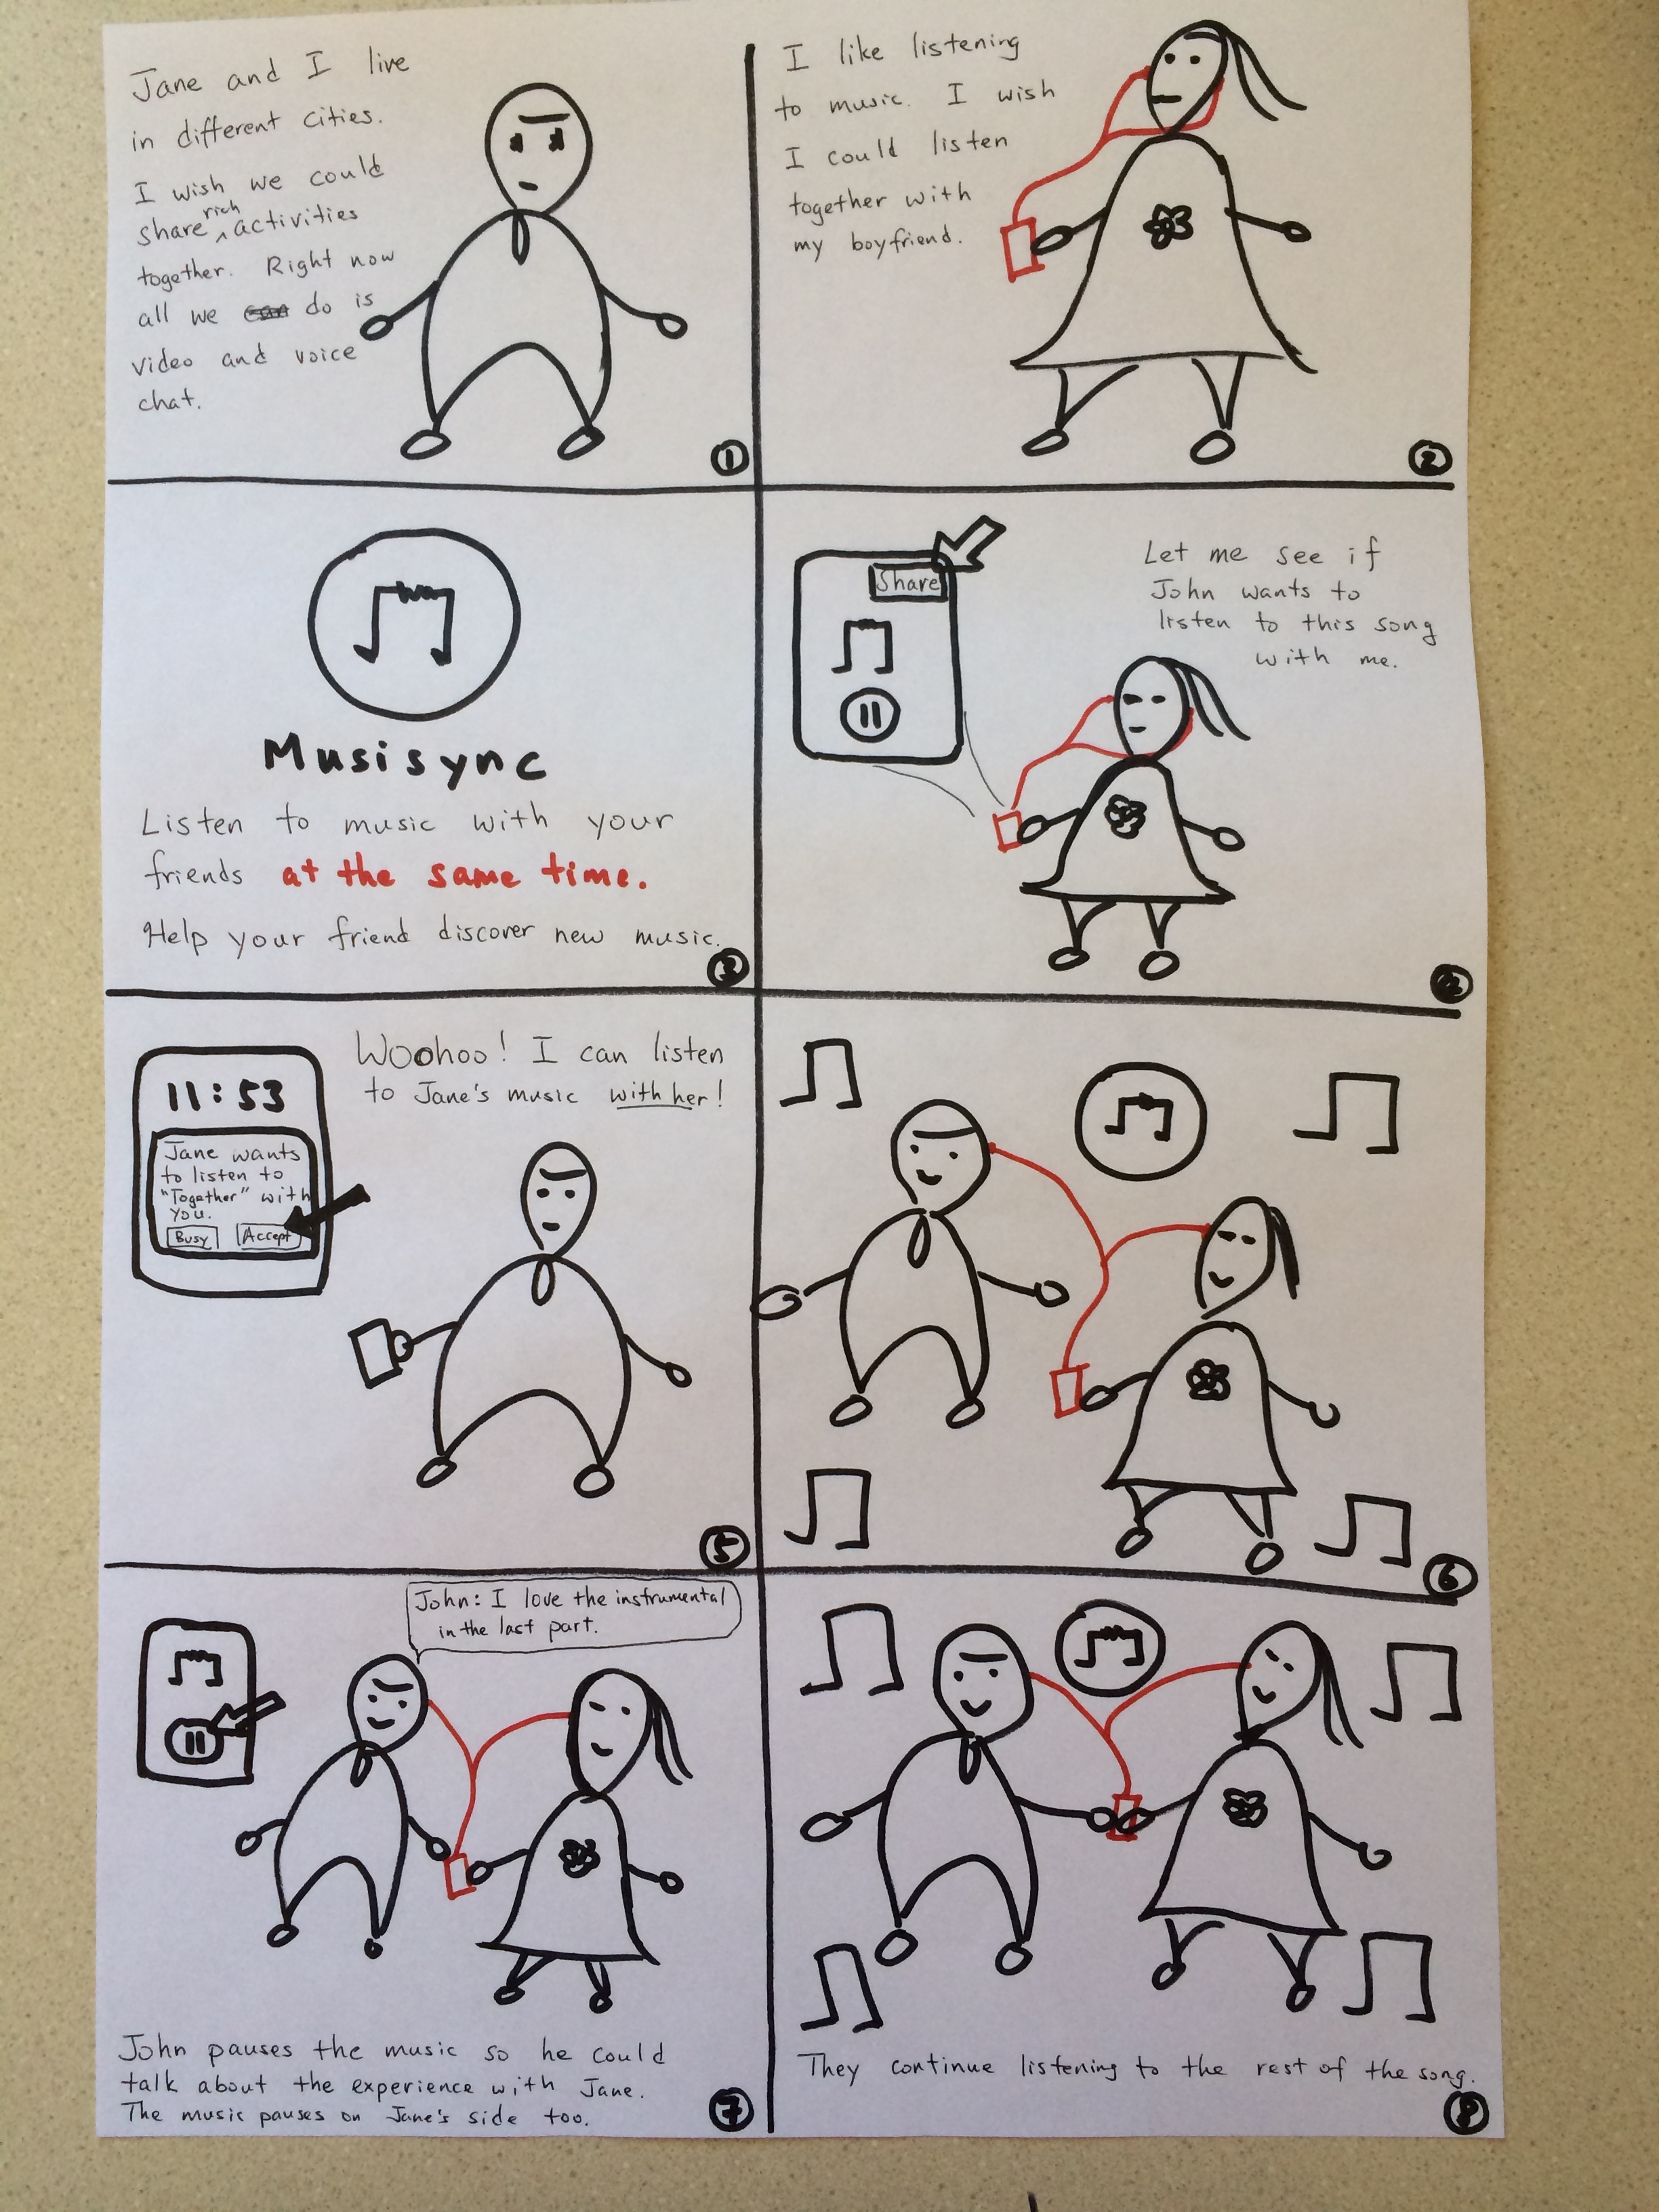 Jane and I live
in different cities.
I wish we could
share rich activities
together. Right now
all we do is
video and voice
chat.
1
I like listening
to music. I wish
I could listen
together with
my boyfriend.
2
Musisync
Listen to music with your
friends at the same time.
Help your friend discover new music.
3
Share
Let me see if
John wants to
listen to this song
with me.
4
11:53
Jane wants
to listen to
"Together" with
you.
Busy Accept
Woohoo! I can listen
to Jane's music with her!
5
6
John: I love the instrumental
in the last part.
John pauses the music so he could
talk about the experience with Jane.
The music pauses on Jane's side too.
7
They continue listening to the rest of the song.
8